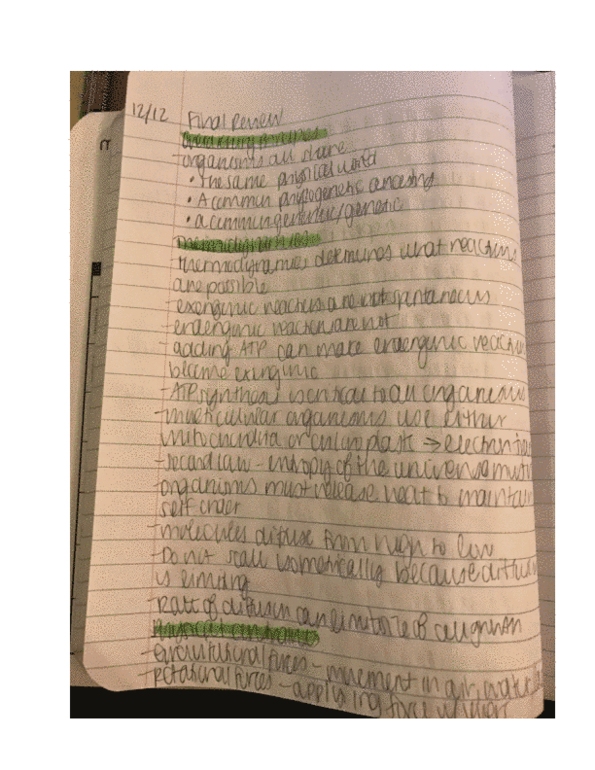 12/12 Final Review
organisms all share
• the same physical world
• A common phylogenetic ancestry
• a common genetic/genetic
thermodynamics
thermodynamics determines what reactions
are possible
- exergonic reactions are spontaneous
- endergonic reaction are not
- adding ATP can make endergonic reactions
become exergonic
- ATP synthesis is critical to all organisms
- multicellular organisms use either
mitochondria or chloroplasts →
- second law - entropy of the universe must
- organisms must release heat to maintain
self order
- molecules diffuse from high to low
- Do not scale isometrically because diffusion
is limiting
- Rate of diffusion can limit rate of cell growth
- forces - movement in air, water,
- rotational forces - applying force